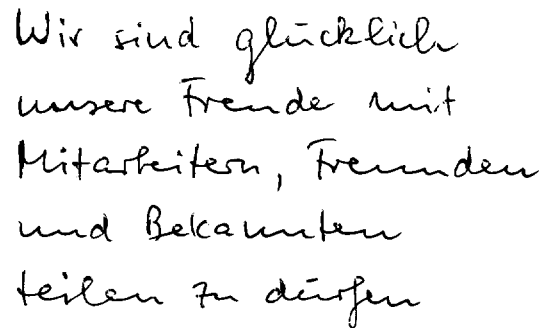 Wir sind glücklich
unsere Freude mit
Mitarbeitern, Freunden
und Bekannten
teilen zu dürfen